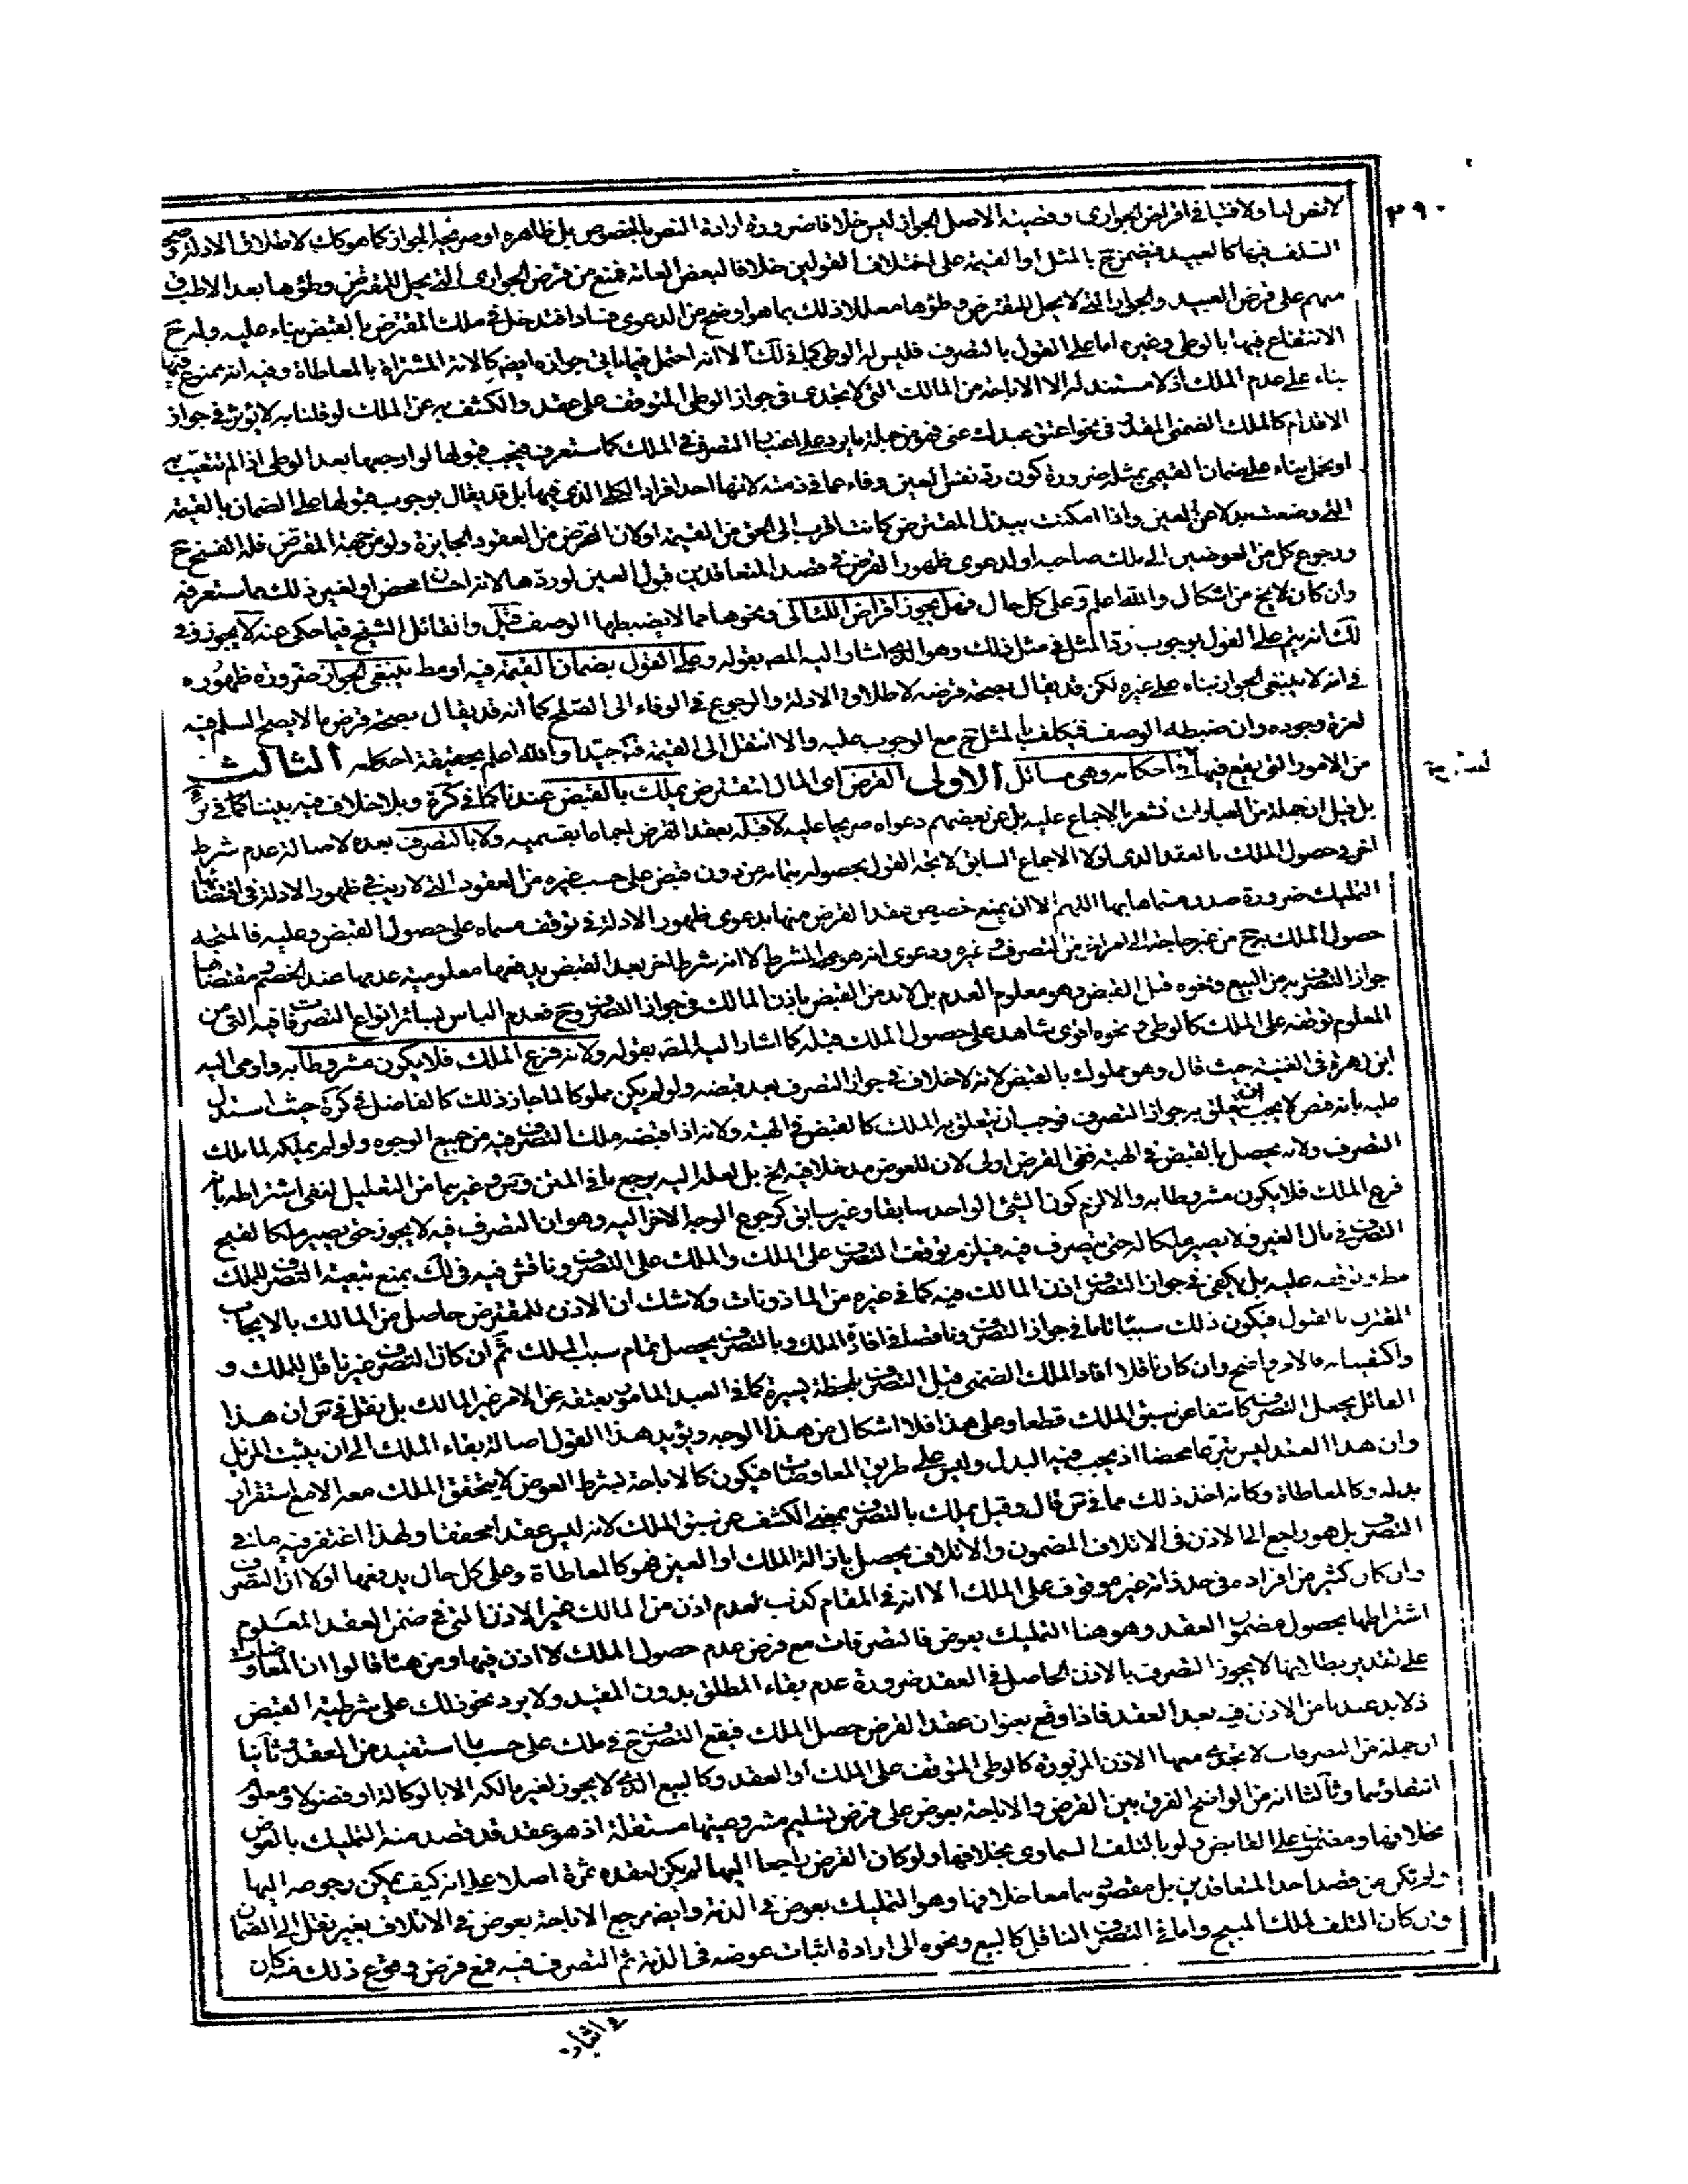 ٣٩٠
لا نص لنا ولا فتيا في اقراض الجواري وقضية الاصل الجواز ليس خلافا ضرورة ارادة النص بالخصوص بل ظاهره او صريحه الجواز كما هو كك لاطلاق الادلة
التلف فيها كالعبيد فيضمن ح بالمثل او القيمة على اختلاف القولين خلافا لبعض العامة فمنع من قرض الجواري التي يحل للمقترض وطؤها بعد الاطباق
منهم على قرض العبيد والجواري التي لا يحل للمقترض وطؤها معللا ذلك بما هو اوضح من الدعوى فسادا فتدخل في ملك المقترض بالقبض بناء عليه وله ح
الانتفاع فيها بالوطي وغيره اما على القول بالتصرف فليس له الوطي كما في لك الا انه احتمل فيما يأتي جوازه ايضا كالامة المشتراة بالمعاطاة وفيه انه ممنوع فيها
بناء على عدم الملك اذ لا مستند له الا الاباحة من المالك التي لا تجدي في جواز الوطي المتوقف على عقد والكشف به عن الملك لو قلنا به لا يؤثر في جواز
الاقدام كالملك الضمني المقدر في نحو اعتق عبدك عني فهو من جملة ما يرد على اعتبار التصرف في الملك كما ستعرفه فيجب قبولها لو ارجعها بعد الوطي اذا لم تتعيب به
او تحمل بناء على ضمان القيمي بمثله ضرورة كون رد نفس العين وفاء عما في ذمته لانها احد افراد الكلي الذي فيها بل قد يقال بوجوب قبولها على الضمان بالقيمة
التي وضعت بدلا عن العين واذا امكنت ببذل المقترض كانت اقرب الى الحق من القيمة او كان القرض من العقود الجايزة ولو من جهة المقترض فله الفسخ ح
ورجوع كل من العوضين الى ملك صاحبه او لدعوى ظهور القرض في قصد المتعاقدين قبول العين لو ردها لانه احسان محض او لغير ذلك مما ستعرفه
وان كان لا يخ من اشكال والله اعلم وعلى كل حال فهل يجوز اقراض اللئالي ونحوها مما لا يضبطها الوصف قيل والقائل الشيخ فيما حكي عنه لا يجوز وفي
لك انه يتم على القول بوجوب رد المثل في مثل ذلك وهو الذي اشار اليه المص بقوله وعلى القول بضمان القيمة فيه او مط ينبغي الجواز ضرورة ظهوره
في انه لا ينبغي الجواز بناء على غيره لكن قد يقال بصحة قرضه لاطلاق الادلة والرجوع في الوفاء الى الصلح كما انه قد يقال بصحة قرض ما لا يصح السلم فيه
لعزة وجوده وان ضبطه الوصف فيكلف بالمثل ح مع الوجوب عليه والا انتقل الى القيمة فتأمل جيدا والله اعلم بحقيقة احكامه الثالث
من الامور التي يقع فيها في احكامه وهي مسائل الاولى القرض اي المال المقترض يملك بالقبض عندنا كما في كرة وبلا خلاف فيه بيننا كما في ئر
بل قيل ان جملة من العبارات تشعر بالاجماع عليه بل عن بعضهم دعواه صريحا عليه لا قبله بعقد القرض اجماعا بقسميه ولا بالتصرف بعده لاصالة عدم شرط
اخر في حصول الملك بالعقد الذي لولا الاجماع السابق لاتجه القول بحصوله بتمامه من دون قبض على حسب غيره من العقود التي لا ريب في ظهور الادلة في اقتضائها
التمليك ضرورة صدور مسماها بها اللهم الا ان يمنع خصوص عقد القرض منها بدعوى ظهور الادلة في توقف مسماه على حصول القبض وعليه فالمتجه
حصول الملك به ح من غير حاجة الى امر اخر من التصرف وغيره ودعوى انه هو الشرط لا انه شرط اخر بعد القبض يدفعها معلومية عدمها عند الخصم ومقتضاها
جواز التصرف به من البيع ونحوه قبل القبض وهو معلوم العدم بل لا بد من القبض باذن المالك في جواز التصرف وح فعدم الباس بسائر انواع التصرفات فيه التي من
المعلوم توقفه على الملك كالوطي ونحوه اقوى شاهد على حصول الملك قبله كما اشار اليه المص بقوله ولانه فرع الملك فلا يكون مشروطا به واومى اليه
ابن زهرة في الغنية حيث قال وهو مملوك بالقبض لانه لا خلاف في جواز التصرف بعد قبضه ولو لم يكن مملوكا لما جاز ذلك كالفاضل في كرة حيث استدل
عليه بانه قبض لا يجب ان يتعلق به جواز التصرف فوجب ان يتعلق به الملك كالقبض في الهبة ولانه اذا قبضه ملك التصرف فيه من جميع الوجوه ولو لم يملكه لما ملك
التصرف ولانه يحصل بالقبض في الهبة ففي القرض اولى لان للعوض مدخلا فيه الخ بل لعله اليه يرجع ما في المتن وس وغيرهما من التعليل لنفي اشتراطه بانه
فرع الملك فلا يكون مشروطا به والا لزم كون الشئ الواحد سابقا وغير سابق كرجوع الوجه الاخر اليه وهو ان التصرف فيه لا يجوز حتى يصير ملكا لقبح
التصرف في مال الغير ولا يصير ملكا له حتى يتصرف فيه فيلزم توقف التصرف على الملك والملك على التصرف وناقش فيه في لك بمنع تبعية التصرف للملك
مط وتوقفه عليه بل يكفي في جواز التصرف اذن المالك فيه كما في غيره من الماذونات ولا شك ان الاذن للمقترض حاصل من المالك بالايجاب
المقترن بالقبول فيكون ذلك سببا تاما في جواز التصرف وناقصا في افادة الملك وبالتصرف يحصل تمام سبب الملك ثم ان كان التصرف غير ناقل للملك و
واكتفينا به فالامر واضح وان كان ناقلا افاد الملك الضمني قبل التصرف بلحظة يسيرة كما في العبد المامور بعتقه عن الامر غير المالك بل نقل في س ان هذا
القائل يجعل التصرف كاشفا عن سبق الملك قطعا وعلى هذا فلا اشكال من هذا الوجه ويؤيد هذا القول اصالة بقاء الملك الى ان يثبت المزيل
وان هذا العقد ليس تبرعا محضا اذ يجب فيه البدل وليس على طريق المعاوضات فيكون كالاباحة بشرط العوض لا يتحقق الملك معه الا مع استقرار
بدله وكالمعاطاة وكانه اخذ ذلك مما في س قال وقيل يملك بالتصرف بمعنى الكشف عن سبق الملك لانه ليس عقدا محققا ولهذا اغتفر فيه ما في
التصرف بل هو راجع الى الاذن في الاتلاف المضمون والاتلاف يحصل بازالة الملك او العين فهو كالمعاطاة وعلى كل حال يدفعها اولا ان التصرف
وان كان كثير من افراده في حد ذاته غير موقوف على الملك الا انه في المقام كذلك لعدم اذن من المالك غير الاذن التي في ضمن العقد المعلوم
اشتراطها بحصول مضمون العقد وهو هنا التمليك بعوض فالتصرفات مع فرض عدم حصول الملك لا اذن فيها ومن هنا قالوا ان المعاوضات
على تقدير بطلانها لا يجوز التصرف بالاذن الحاصل في العقد ضرورة عدم بقاء المطلق بدون المقيد ولا يرد نحو ذلك على شرطية القبض
اذ لا بد عندنا من الاذن فيه بعد العقد فاذا وقع بعنوان عقد القرض حصل الملك فيقع التصرف ح في ملك على حسب ما استفيد من العقد وثانيا
ان جملة من التصرفات لا تجدي معها الاذن المزبورة كالوطي المتوقف على الملك او العقد وكالبيع الذي لا يجوز لغير مالكه الا بالوكالة او فضولا ومعلوم
انتفاؤهما وثالثا انه من الواضح الفرق بين القرض والاباحة بعوض على فرض تسليم مشروعيتها مستقلة اذ هو عقد قد قصد منه التمليك بالعوض
بخلافها ومضمون على القابض ولو بالتلف السماوي بخلافها ولو كان القرض راجعا اليها لم يكن لعقده ثمرة اصلا على انه كيف يمكن رجوعه اليها
ولم تكن من قصد احد المتعاقدين بل مقصودهما معا خلافها وهو التمليك بعوض في الذمة وايضا مرجع الاباحة بعوض في الاتلاف بغير نقل الى الضمان
وان كان التلف لملك المبيح واما في التصرف الناقل كالبيع ونحوه الى ارادة اثبات عوضه في الذمة ثم التصرف فيه فمع فرض وقوع ذلك منه كان